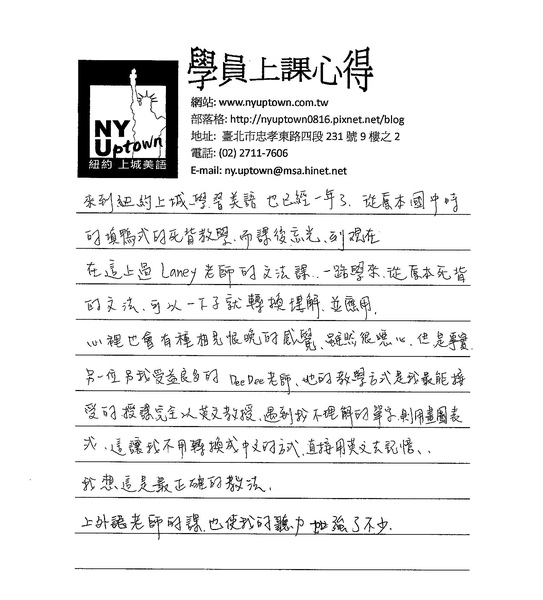 學員上課心得
NY
Uptown
紐約 上城美語
網站: www.nyuptown.com.tw
部落格: http://nyuptown0816.pixnet.net/blog
地址: 臺北市忠孝東路四段 231 號 9 樓之 2
電話: (02) 2711-7606
E-mail: ny.uptown@msa.hinet.net
來到紐約上城學習美語 也已經一年了、從原本國中時
的填鴨式的死背教學、而課後忘光、到現在
在這上過 Laney 老師的文法課、一路學來、從原本死背
的文法、可以一下子就轉換理解、並應用、
心裡也會有種相見恨晚的感覺、雖然很噁心、但是事實
另一位另我受益良多的 DeeDee老師、他的教學方式是我最能接
受的授課完全以英文教授、遇到我不理解的單字、則用畫圖表
式、這讓我不用轉換成中文的方式、直接用英文去記憶、、
我想這是最正確的教法、
上外語老師的課、也使我的聽力加強了不少、